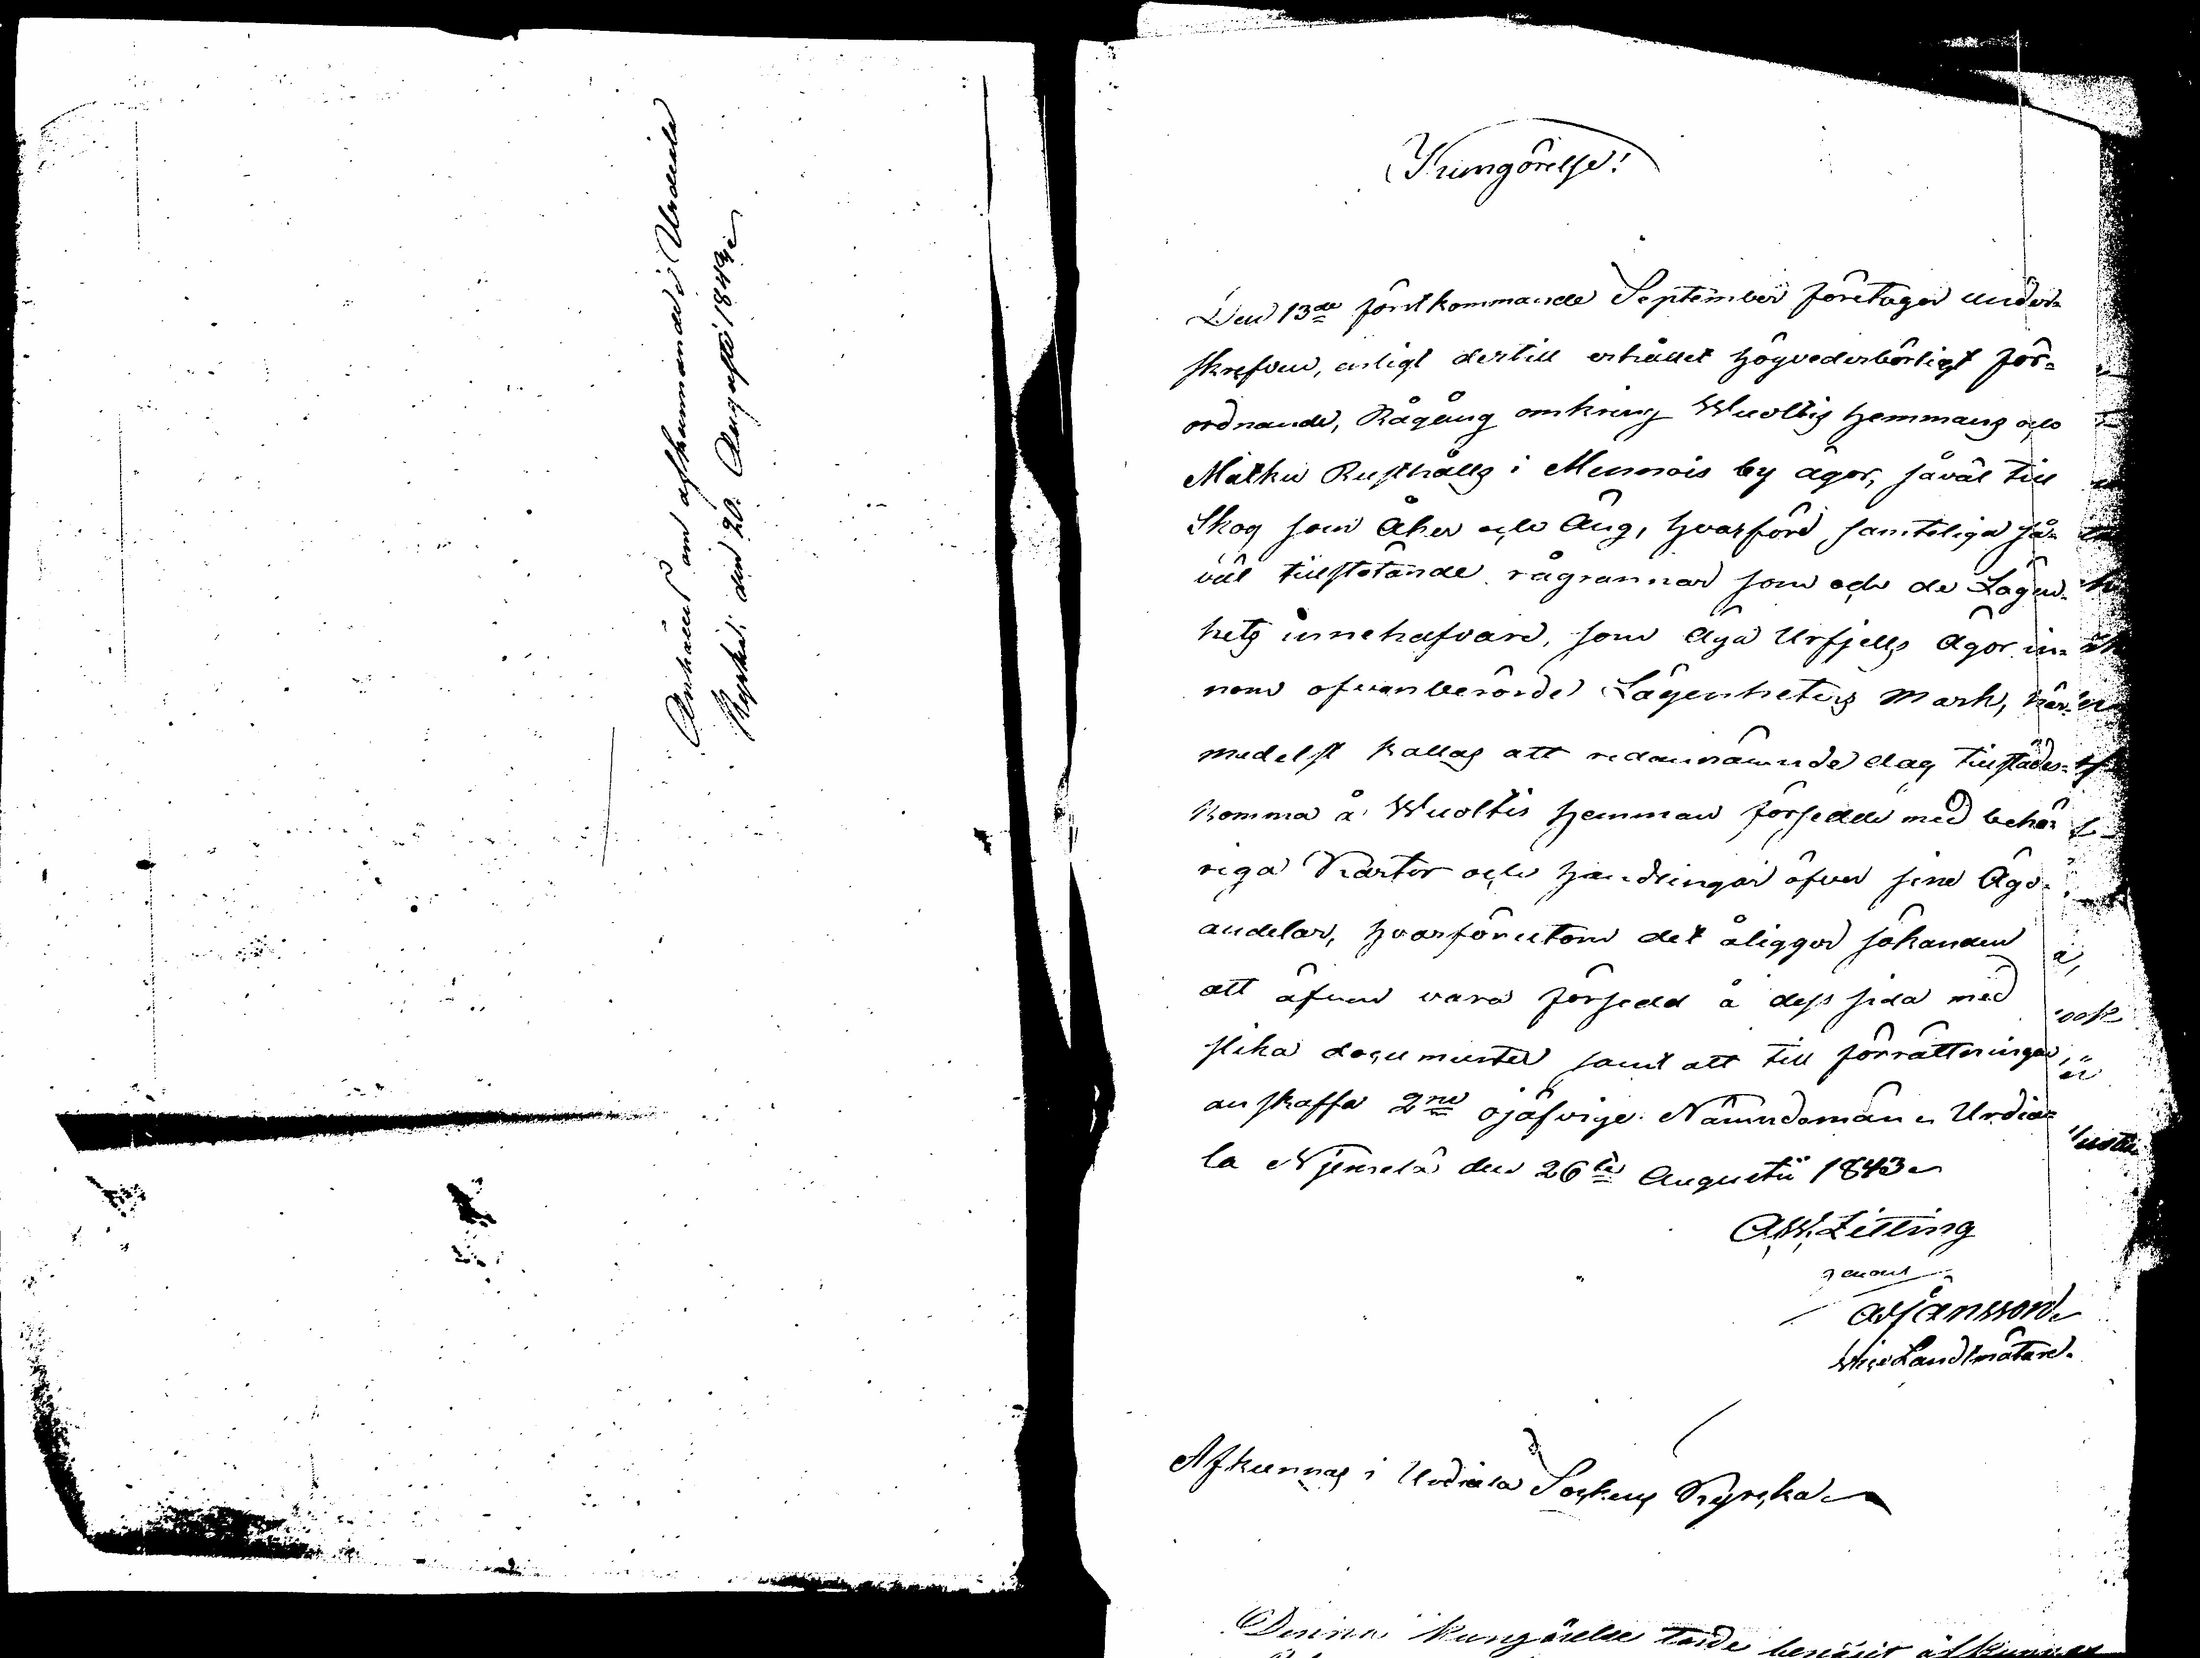 Anhållet om afkunnande i Urdiala
Kyrka, den 20. Augusti 1843.
Kungörelse!
Den 13de förstkommande September företager under-
skrefven, enligt dertill erhållet högvederbörligt för-
ordnande, Rågång omkring Wuoltis hemmans och
Matku Rusthålls i Mennois by ägor, såväl till
Skog som Åker och Äng, hvarföre samteliga så-
väl tillstötande rågrannar som och de Lägen-
hets innehafvare, som äga Urfjells ägor in-
nom ofvanberörde Lägenheters mark, här-
medelst kallas att redannämnde dag tillstädes-
komma å Wuoltis hemman försedde med behö-
riga Kartor och handlingar öfver sine Ägo-
andelar, hvarförutom det åligger sökanden
att äfven vara försedd å dess sida med
slika documenter samt att till förrättningen
anskaffa 2ne ojäfvige Nämndemän. Urdia-
la Njemelä den 26te Augustii 1843.
A.W. Zitting
Jansson
Vice Landtmätare.
Afkunnas i Urdiala Sockens Kyrcka
Denna kungörelse torde benäget afkunnas